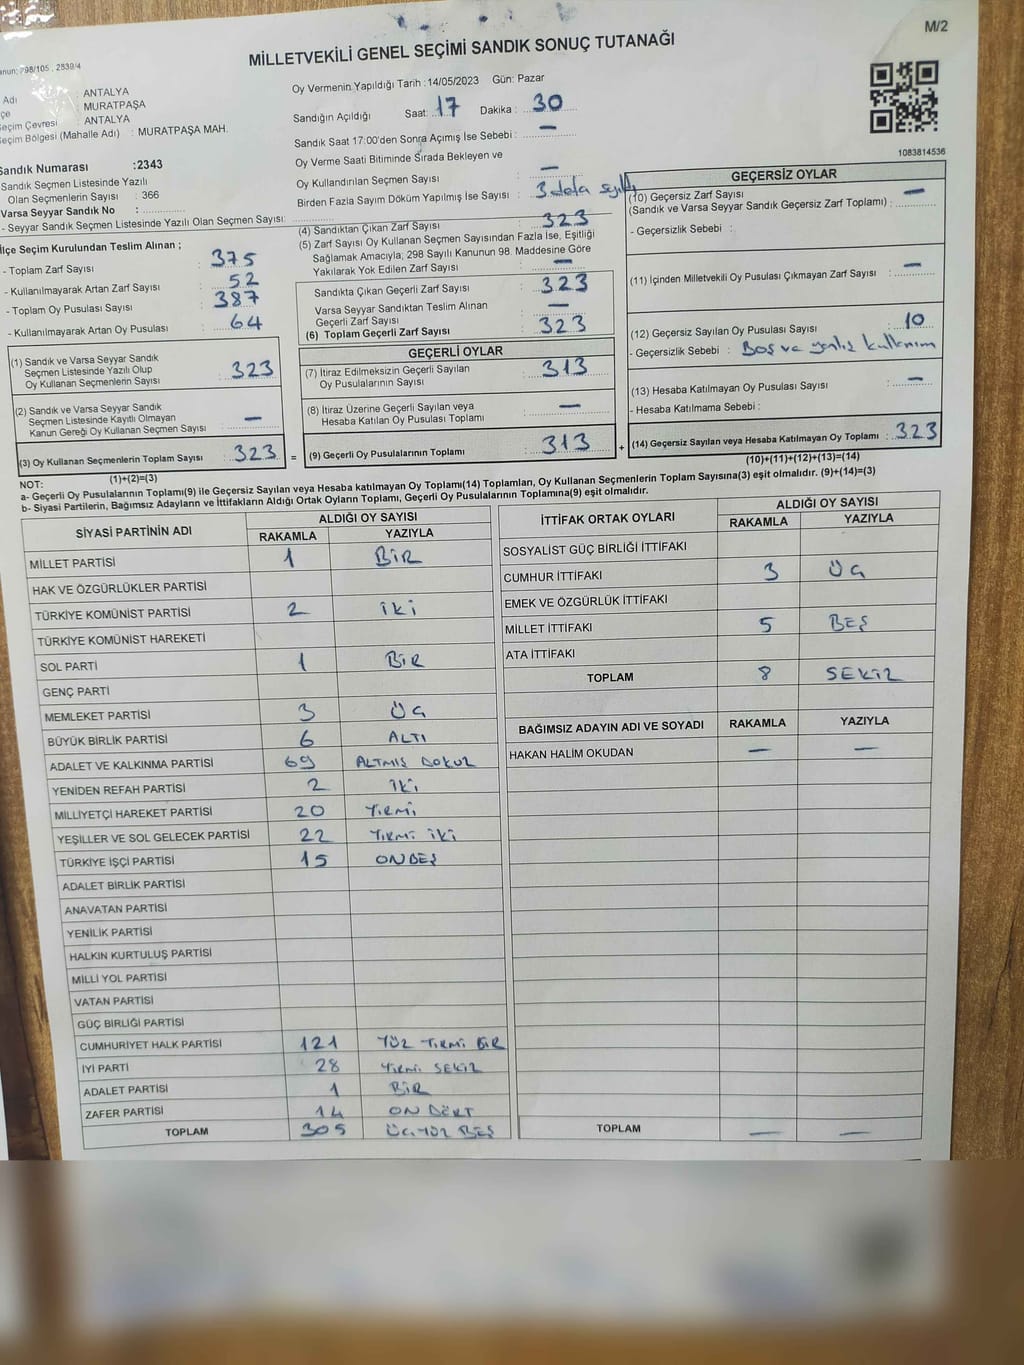 M/2
MİLLETVEKİLİ GENEL SEÇİMİ SANDIK SONUÇ TUTANAĞI
anun: 298/105 , 2839/4
Adı : ANTALYA
çe : MURATPAŞA
eçim Çevresi : ANTALYA
eçim Bölgesi (Mahalle Adı) : MURATPAŞA MAH.
Sandık Numarası :2343
Sandık Seçmen Listesinde Yazılı
Olan Seçmenlerin Sayısı : 366
Varsa Seyyar Sandık No :
- Seyyar Sandık Seçmen Listesinde Yazılı Olan Seçmen Sayısı:
Oy Vermenin Yapıldığı Tarih : 14/05/2023 Gün: Pazar
Sandığın Açıldığı Saat: 17 Dakika : 30
Sandık Saat 17:00'den Sonra Açımış İse Sebebi : —
Oy Verme Saati Bitiminde Sırada Bekleyen ve
Oy Kullandırılan Seçmen Sayısı : —
Birden Fazla Sayım Döküm Yapılmış İse Sayısı : 3 defa
1083814536
İlçe Seçim Kurulundan Teslim Alınan ;
- Toplam Zarf Sayısı : 375
- Kullanılmayarak Artan Zarf Sayısı : 52
- Toplam Oy Pusulası Sayısı : 387
- Kullanılmayarak Artan Oy Pusulası : 64
(1) Sandık ve Varsa Seyyar Sandık
Seçmen Listesinde Yazılı Olup
Oy Kullanan Seçmenlerin Sayısı : 323
(2) Sandık ve Varsa Seyyar Sandık
Seçmen Listesinde Kayıtlı Olmayan
Kanun Gereği Oy Kullanan Seçmen Sayısı : —
(3) Oy Kullanan Seçmenlerin Toplam Sayısı : 323
(1)+(2)=(3)
(4) Sandıktan Çıkan Zarf Sayısı : 323
(5) Zarf Sayısı Oy Kullanan Seçmen Sayısından Fazla İse, Eşitliği
Sağlamak Amacıyla; 298 Sayılı Kanunun 98. Maddesine Göre
Yakılarak Yok Edilen Zarf Sayısı : —
Sandıkta Çıkan Geçerli Zarf Sayısı : 323
Varsa Seyyar Sandıktan Teslim Alınan
Geçerli Zarf Sayısı : —
(6) Toplam Geçerli Zarf Sayısı : 323
GEÇERLİ OYLAR
(7) İtiraz Edilmeksizin Geçerli Sayılan
Oy Pusulalarının Sayısı : 313
(8) İtiraz Üzerine Geçerli Sayılan veya
Hesaba Katılan Oy Pusulası Toplamı : —
=
(9) Geçerli Oy Pusulalarının Toplamı : 313
+
GEÇERSİZ OYLAR
(10) Geçersiz Zarf Sayısı : —
(Sandık ve Varsa Seyyar Sandık Geçersiz Zarf Toplamı) :
- Geçersizlik Sebebi :
(11) İçinden Milletvekili Oy Pusulası Çıkmayan Zarf Sayısı : —
(12) Geçersiz Sayılan Oy Pusulası Sayısı : 10
- Geçersizlik Sebebi : Boş ve yanlış kullanım
(13) Hesaba Katılmayan Oy Pusulası Sayısı : —
- Hesaba Katılmama Sebebi :
(14) Geçersiz Sayılan veya Hesaba Katılmayan Oy Toplamı : 323
(10)+(11)+(12)+(13)=(14)
NOT:
a- Geçerli Oy Pusulalarının Toplamı(9) ile Geçersiz Sayılan veya Hesaba katılmayan Oy Toplamı(14) Toplamları, Oy Kullanan Seçmenlerin Toplam Sayısına(3) eşit olmalıdır. (9)+(14)=(3)
b- Siyasi Partilerin, Bağımsız Adayların ve İttifakların Aldığı Ortak Oyların Toplamı, Geçerli Oy Pusulalarının Toplamına(9) eşit olmalıdır.
SİYASİ PARTİNİN ADI ALDIĞI OY SAYISI
RAKAMLA YAZIYLA
MİLLET PARTİSİ 1 BİR
HAK VE ÖZGÜRLÜKLER PARTİSİ
TÜRKİYE KOMÜNİST PARTİSİ 2 İKİ
TÜRKİYE KOMÜNİST HAREKETİ
SOL PARTİ 1 BİR
GENÇ PARTİ
MEMLEKET PARTİSİ 3 ÜÇ
BÜYÜK BİRLİK PARTİSİ 6 ALTI
ADALET VE KALKINMA PARTİSİ 69 ALTMIŞ DOKUZ
YENİDEN REFAH PARTİSİ 2 İKİ
MİLLİYETÇİ HAREKET PARTİSİ 20 YİRMİ
YEŞİLLER VE SOL GELECEK PARTİSİ 22 YİRMİ İKİ
TÜRKİYE İŞÇİ PARTİSİ 15 ONBEŞ
ADALET BİRLİK PARTİSİ
ANAVATAN PARTİSİ
YENİLİK PARTİSİ
HALKIN KURTULUŞ PARTİSİ
MİLLİ YOL PARTİSİ
VATAN PARTİSİ
GÜÇ BİRLİĞİ PARTİSİ
CUMHURİYET HALK PARTİSİ 121 YÜZ YİRMİ BİR
İYİ PARTİ 28 YİRMİ SEKİZ
ADALET PARTİSİ 1 BİR
ZAFER PARTİSİ 14 ON DÖRT
TOPLAM 305 ÜÇ YÜZ BEŞ
İTTİFAK ORTAK OYLARI ALDIĞI OY SAYISI
RAKAMLA YAZIYLA
SOSYALİST GÜÇ BİRLİĞİ İTTİFAKI
CUMHUR İTTİFAKI 3 ÜÇ
EMEK VE ÖZGÜRLÜK İTTİFAKI
MİLLET İTTİFAKI 5 BEŞ
ATA İTTİFAKI
TOPLAM 8 SEKİZ
BAĞIMSIZ ADAYIN ADI VE SOYADI RAKAMLA YAZIYLA
HAKAN HALİM OKUDAN — —
TOPLAM — —